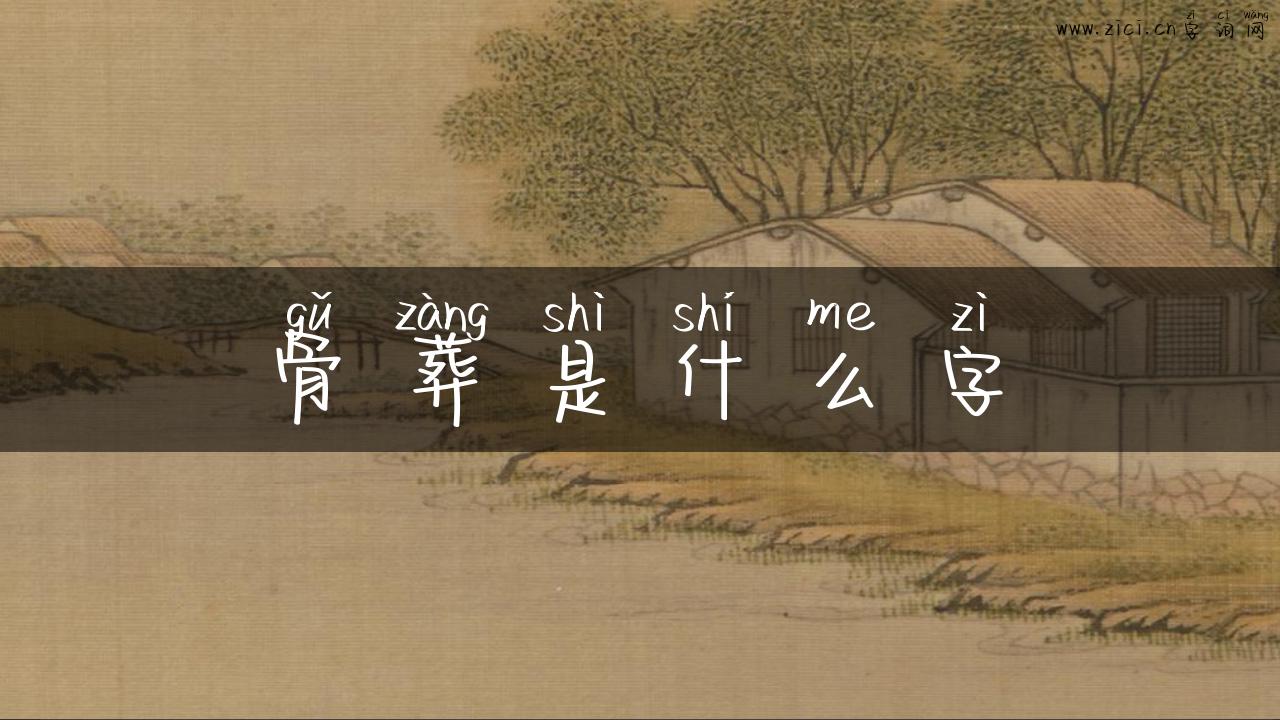 zì cí wǎng
www.zici.cn字词网
gǔ zàng shì shí me zì
骨葬是什么字